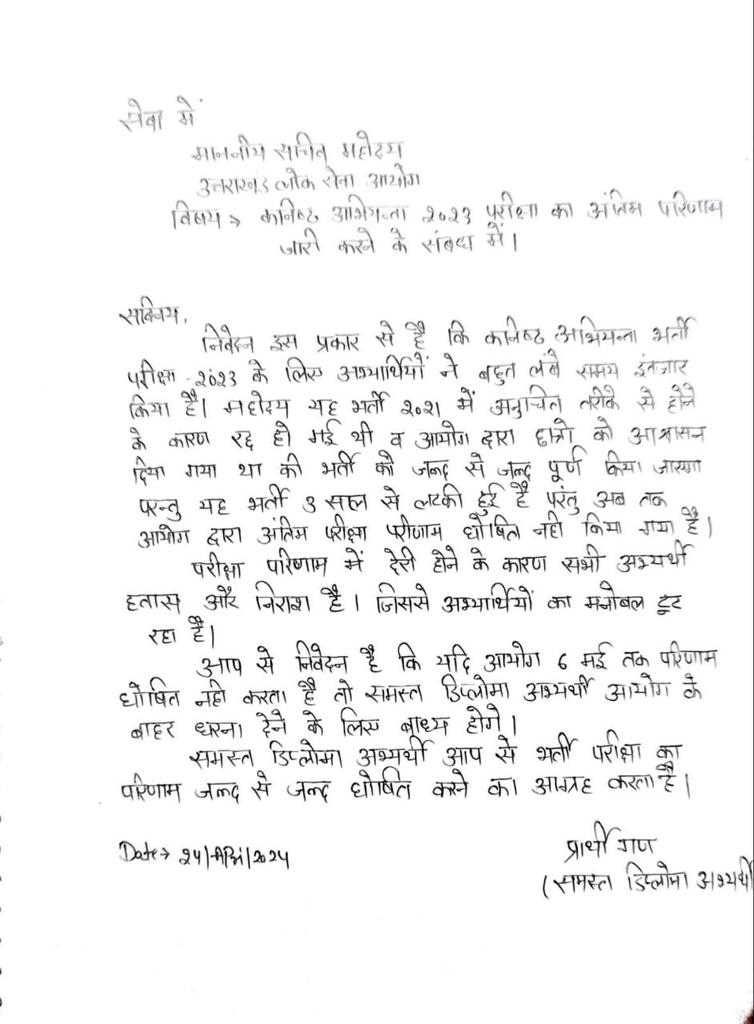 सेवा में
माननीय सचिव महोदय
उत्तराखंड लोक सेवा आयोग
विषय → कनिष्ठ अभियन्ता २०२३ परीक्षा का अंतिम परिणाम
जारी करने के संबध में।
सविनय,
निवेदन इस प्रकार से है कि कनिष्ठ अभियन्ता भर्ती
परीक्षा -२०२३ के लिए अभ्यार्थियों ने बहुत लंबे समय इंतजार
किया है। महोदय यह भर्ती २०२१ में अनुचित तरीके से होने
के कारण रद्द हो गई थी व आयोग द्वारा छात्रो को आश्वासन
दिया गया था की भर्ती को जल्द से जल्द पूर्ण किया जाएगा
परन्तु यह भर्ती ३ साल से लटकी हुई है परंतु अब तक
आयोग द्वारा अंतिम परीक्षा परीणाम घोषित नही किया गया है।
परीक्षा परिणाम में देरी होने के कारण सभी अभ्यर्थी
हतास और निराश है। जिससे अभ्यार्थियों का मनोबल टूट
रहा है।
आप से निवेदन है कि यदि आयोग 6 मई तक परिणाम
घोषित नही करता है तो समस्त डिप्लोमा अभ्यर्थी आयोग के
बाहर धरना देने के लिए बाध्य होगे।
समस्त डिप्लोमा अभ्यर्थी आप से भर्ती परीक्षा का
परिणाम जल्द से जल्द घोषित करने का आग्रह करता है।
Date→ 24/April/2024
प्रार्थी गण
(समस्त डिप्लोमा अभ्यर्थी